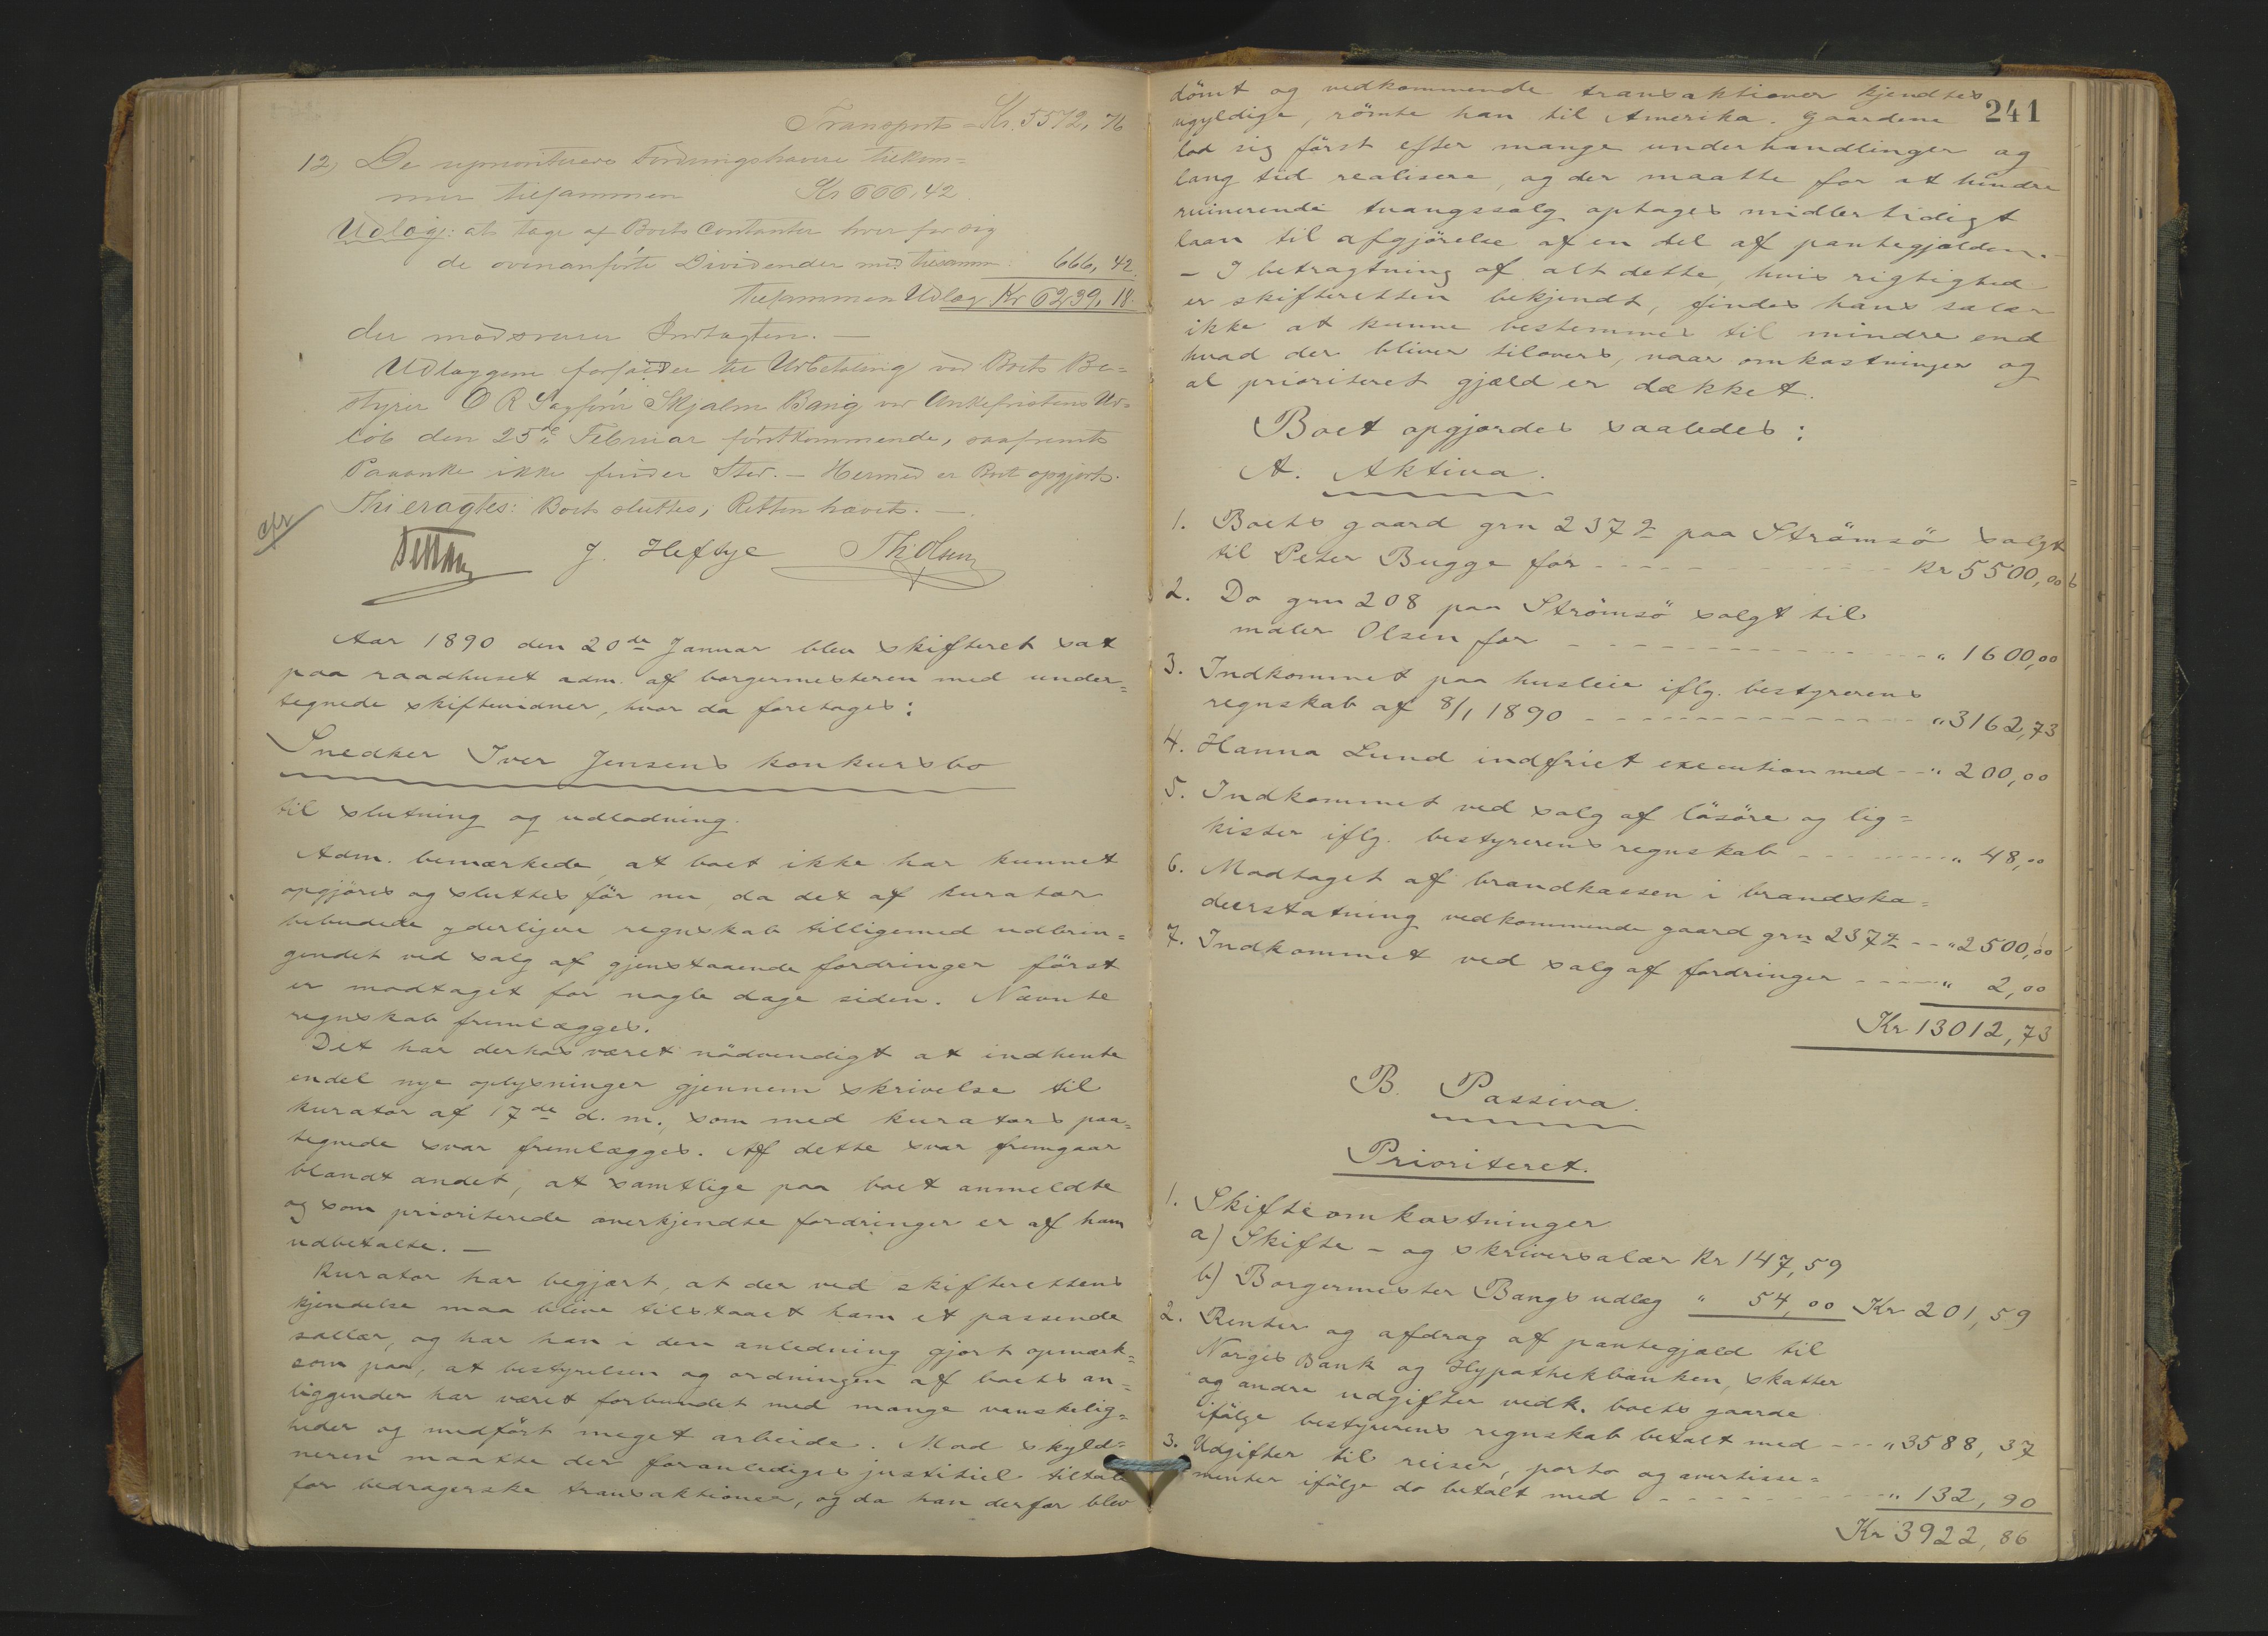 Transport Kr. 5572,76
12) De uprioriterede Fordringshavere tilkom=
mer tilsammen Kr 666,42
Udlæg: at tage af Boets Contanter hver for sig
de ovenanførte Dividender med tilsamm: 666,42
tilsammen Udlæg Kr 6239,18
der modsvarer Indtægten. —
Udlæggene forfalder til Udbetaling ved Boets Be=
styrer O R Sagfører Skjalm Bang ved Ankefristens Ud=
løb den 25de Februar førstkommende, saafremt
Paaanke ikke finder Sted. — Hermed er Boet opgjort.
Thi eragtes: Boet sluttes; Retten hævet. —
J. Heftye Th. Olsen
Aar 1890 den 20de Januar blev skifteret sat
paa raadhuset adm. af borgermesteren med under=
tegnede skiftevidner, hvor da foretages:
Snedker Iver Jensens konkursbo
til slutning og udlodning.
Adm. bemærkede, at boet ikke har kunnet
opgjøres og sluttes før nu, da det af kurator
bebudede yderligere regnskab tilligemed udbrin=
gendet ved salg af gjenstaaende fordringer först
er modtaget for nogle dage siden. Nævnte
regnskab fremlægges.
Det har derhos været nödvendigt at indhente
endel nye oplysninger gjennem skrivelse til
kurator af 17de d. m., som med kurators paa=
tegnede svar fremlægges. Af dette svar fremgaar
blandt andet, at samtlige paa boet anmeldte
og som prioriterede anerkjendte fordringer er af ham
udbetalte. —
Kurator har begjært, at der ved skifterettens
kjendelse maa blive tilstaaet ham et passende
sallær, og har han i den anledning gjort opmærk=
som paa, at bestyrelsen og ordningen af boets an=
liggender har været forbundet med mange vanskelig=
heder og medfört meget arbeide. Mod skyld=
neren maatte der foranlediges justitiel tiltale
for bedragerske transaktioner, og da han derfor blev
241
dömt og vedkommende transaktioner kjendtes
ugyldige, römte han til Amerika. Gaardene
lod sig först efter mange underhandlinger og
lang tid realisere, og der maatte for at hindre
ruinerende tvangssalg optages midlertidigt
laan til afgjörelse af en del af pantegjælden. —
— I betragtning af alt dette, hvis rigtighed
er skifteretten bekjendt, findes hans salær
ikke at kunne bestemmes til mindre end
hvad der bliver tilovers, naar omkostninger og
al prioriteret gjæld er dækket.
Boet opgjordes saaledes:
A. Aktiva.
1. Boets gaard grn 237a paa Strömsö solgt
til Peter Bugge for Kr 5500,00
2. Do grn 208 paa Strömsö solgt til
maler Olsen for " 1600,00
3. Indkommet paa husleie iflg. bestyrerens
regnskab af 8/1 1890 " 3162,73
4. Hanna Lund indfriet execution med " 200,00
5. Indkommet ved salg af lösöre og lig=
kister iflg. bestyrerens regnskab " 48,00
6. Modtaget af brandkassen i brandska=
deerstatning vedkommende gaard grn 237a " 2500,00
7. Indkommet ved salg af fordringer " 2,00
Kr 13012,73
B. Passiva.
Prioriteret.
1. Skifteomkostninger
a) Skifte- og skriversalær Kr 147,59
b) Borgermester Bangs udlæg " 54,00 Kr 201,59
2. Renter og afdrag af pantegjæld til
Norges Bank og Hypothekbanken, skatter
og andre udgifter vedk. boets gaarde
ifölge bestyrerens regnskab betalt med " 3588,37
3. Udgifter til reiser, porto og avertisse=
menter ifölge do betalt med " 132,90
Kr 3922,86